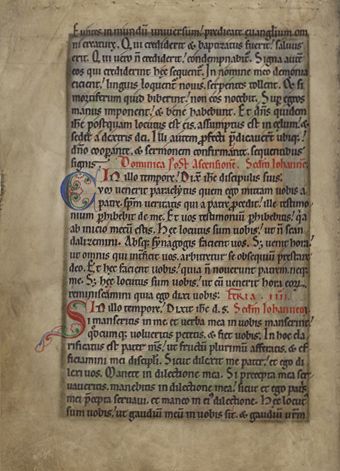 Euntes in mundū universum, predicate euangliū om
ni creaturę. Qui crediderit & baptizatus fuerit, saluus
erit. Qui uero ñ crediderit, condempnabit. Signa autē
eos qui crediderint hęc sequent. In nomine meo demonia
eicient, linguis loquent nouis, serpentes tollent. & si
mortiferum quid biberint, non eos nocebit. Sup egros
manus imponent, & bene habebunt. Et dñs quidem
ihc postquam locutus est eis, assumptus est in celum, &
sedet a dextris dei. Illi autem pfecti pdicauert ubiq;,
dño coopante, & sermonem confirmante, sequentibus
signis. Dominica post ascensionē. Scdm Iohanne
In illo tempore, Dix ihc discipulis suis,
Cū uenerit paraclytus quem ego mittam uobis a
patre, spm ueritatis qui a patre pcedit, ille testimo
nium phibebit de me. Et uos testimoniū phibebitis, qa
ab inicio mecū estis. Hęc locutus sum uobis, ut ñ scan
dalizemini. Absq; synagogis facient uos. S; uenit hora,
ut omnis qui int̄ficit uos, arbitretur se obsequiū prestare
deo. Et hęc facient uobis, quia ñ nouerunt patrem neq;
me. S; hęc locutus sum uobis, ut cū uenerit hora eor,
reminiscimini quia ego dixi uobis. FERIA. IIII.
In illo tempore, Dixit ihc d. s. Scdm Iohannem
Si manseritis in me, et uerba mea in uobis manserint,
qdcumq; uolueritis petetis, & fiet uobis. In hoc cla
rificatus est pater ms, ut fructū plurimū afferatis, & ef
ficiamini mei discipli. Sicut dilexit me pater, et ego di
lexi uos. Manete in dilectione mea. Si precepta mea ser
uaueritis, manebitis in dilectione mea, sicut et ego patris
mei pcepta seruaui, et maneo in ei dilectione. Hęc locutus
sum uobis, ut gaudiū meū in uobis sit, & gaudiū urm